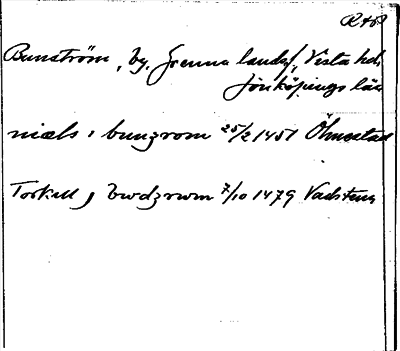 Bunström, by, Grenna landsf, Vista hd,
Jönköpings län
niæls i bunzrom 25/2 1451 Ölmestad
Torkell j bwdzrwm 7/10 1479 Vadstena